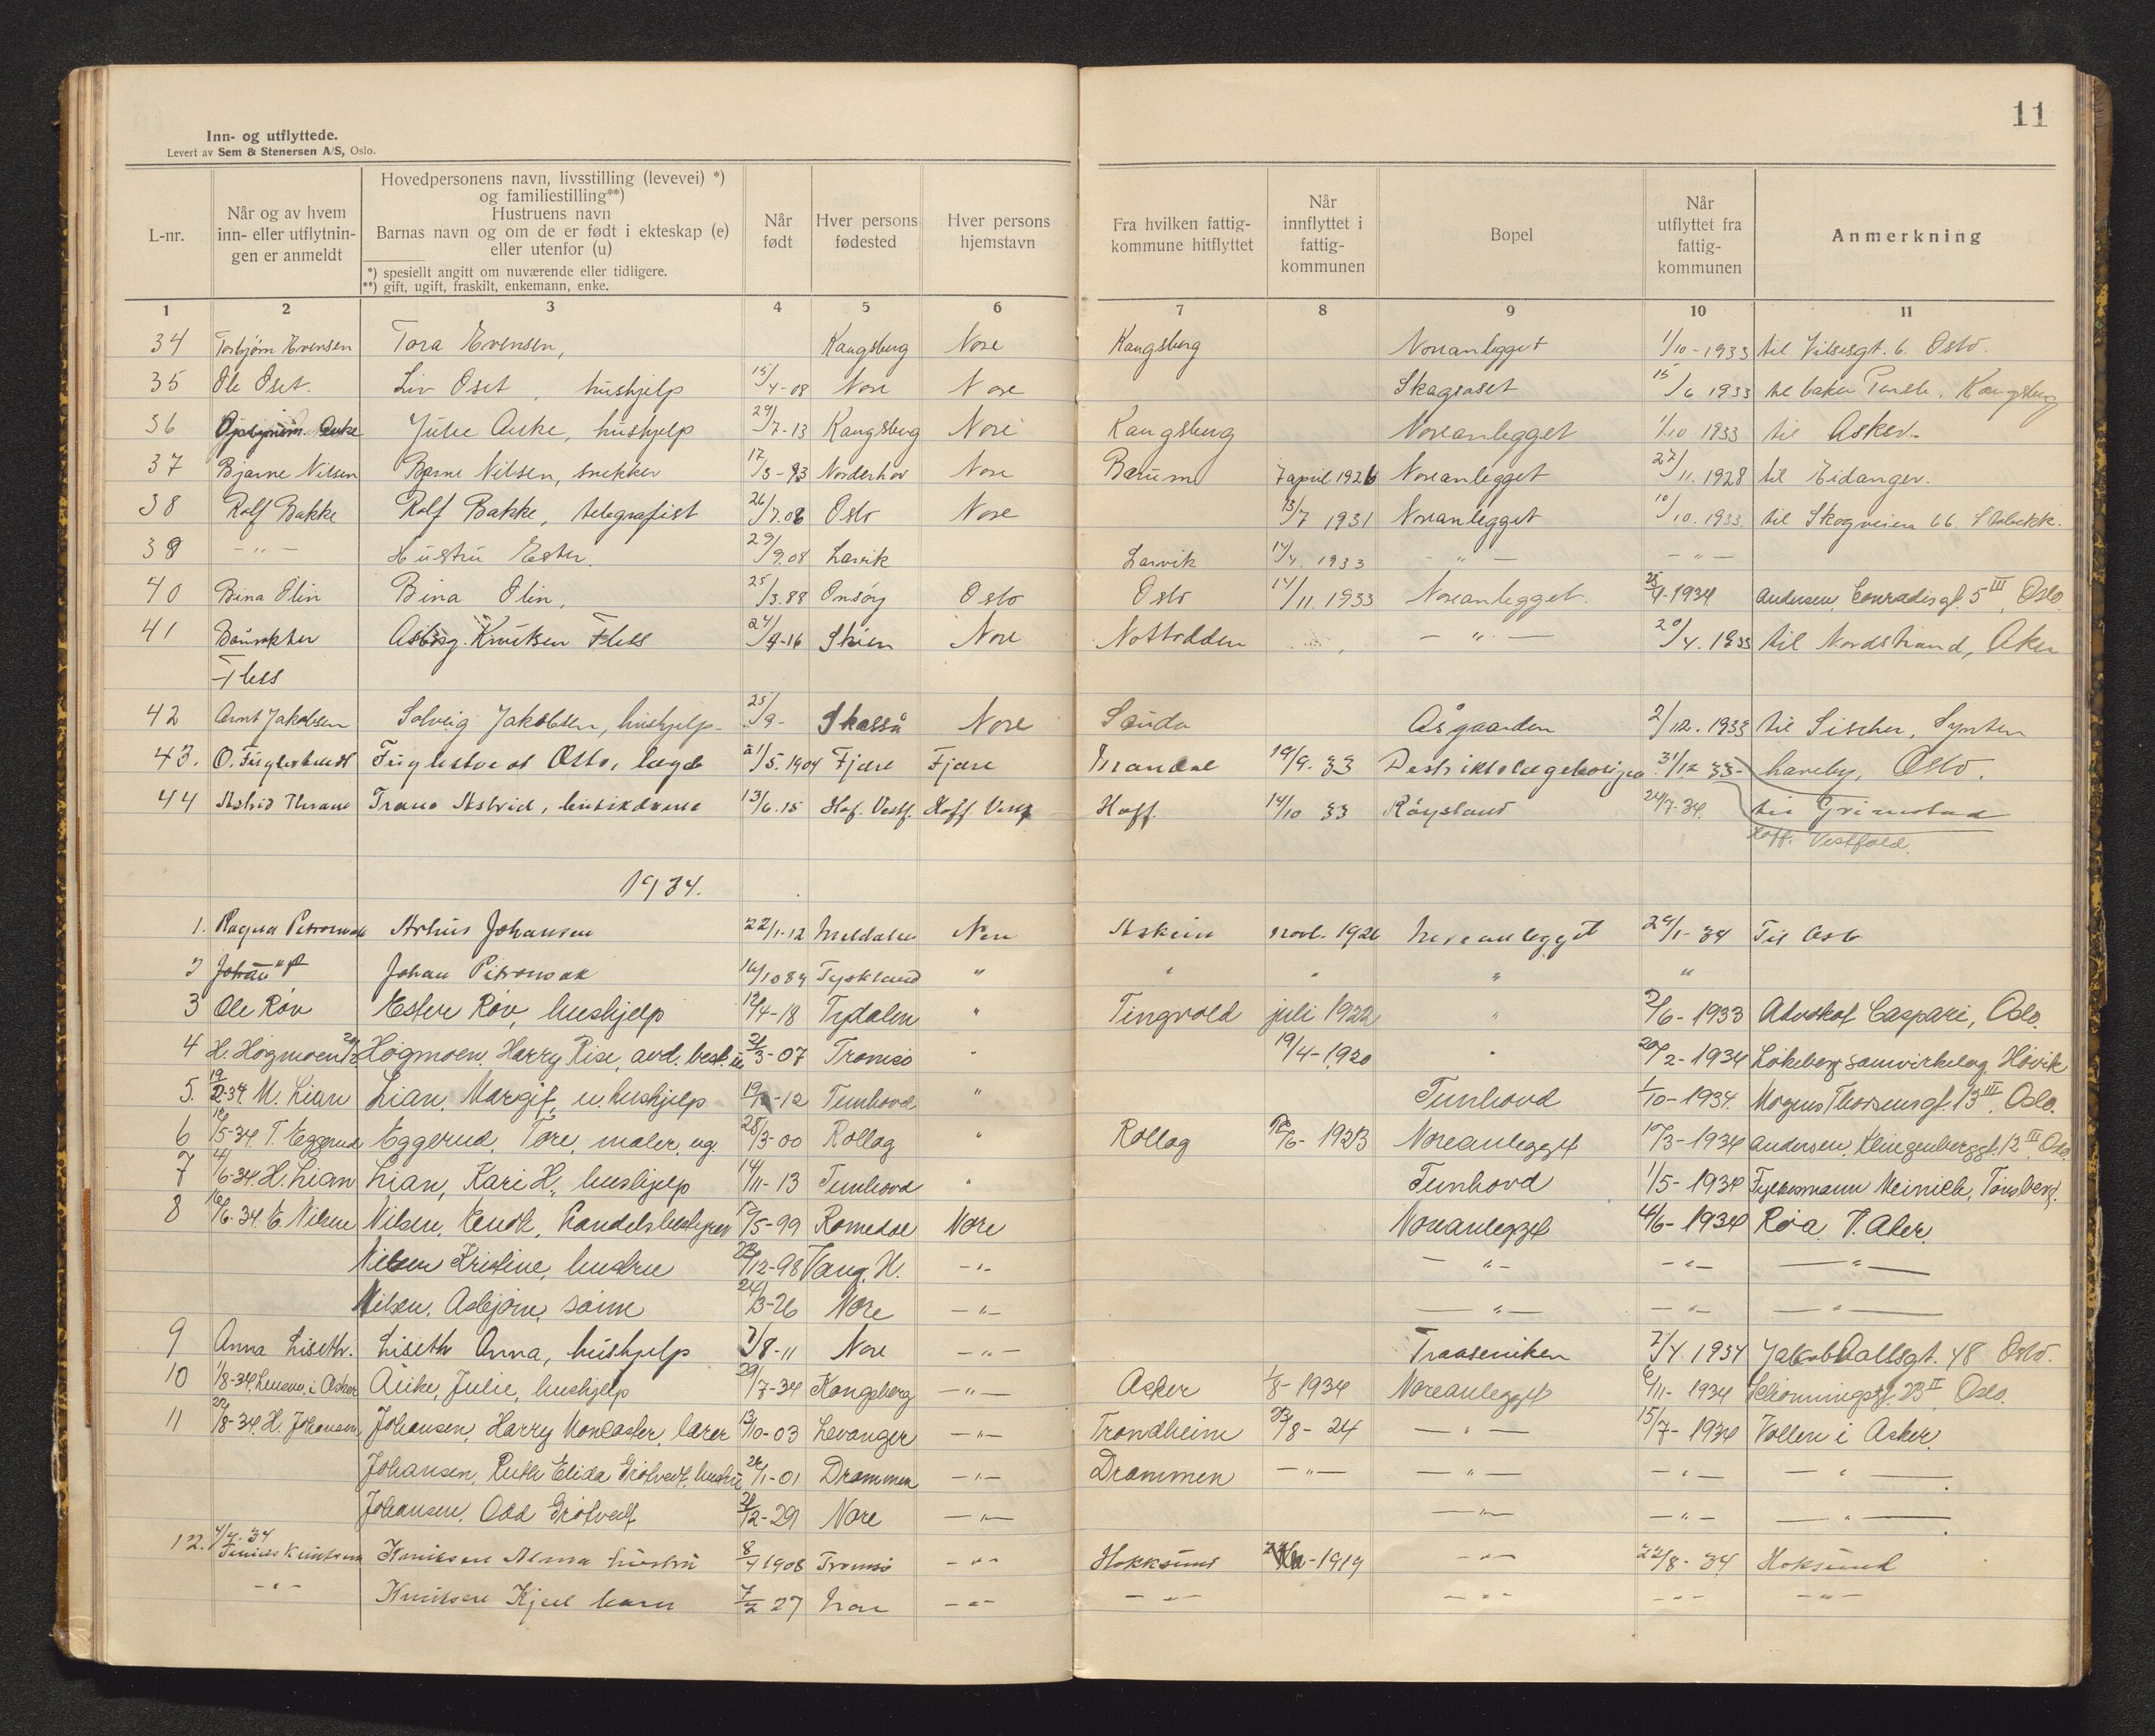 11
Inn- og utflyttede.
Levert av Sem & Stenersen A/S, Oslo.
L-nr.
Når og av hvem inn- eller utflytnin- gen er anmeldt
Hovedpersonens navn, livsstilling (levevei) *)
og familiestilling**)
Hustruens navn
Barnas navn og om de er født i ekteskap (e)
eller utenfor (u)
*) spesiellt angitt om nuværende eller tidligere.
**) gift, ugift, fraskilt, enkemann, enke.
Når født
Hver persons fødested
Hver persons hjemstavn
Fra hvilken fattig- kommune hitflyttet
Når innflyttet i fattig- kommunen
Bopel
Når utflyttet fra fattig- kommunen
Anmerkning
1 2 3 4 5 6 7 8 9 10 11
34 Torbjørn Evensen Tora Evensen, Kongsberg Nore Kongsberg Noreanlegget 1/10-1933 til Oslo.
35 Ole Øset. Liv Øset, hushjelp 15/4-08 Nore Nore 15/6 1933 til baker Kongsberg
36 Julie Auke, hushjelp 29/7-13 Kongsberg Nore Kongsberg Noreanlegget 1/10 1933 til Asker.
37 Bjarne Nilsen Bjarne Nilsen, snekker Norderhov Nore Bærum 7 april 1926 Noreanlegget 27/11.1928 til Eidanger.
38 Rolf Bakke Rolf Bakke, telegrafist 26/7.08 Oslo Nore 13/7 1931 Noreanlegget 10/10.1933 til Skogveien 66.
39 -"- Hustru Ester. 29/9.08 Larvik Larvik 14/4.1933 -"- -"-
40 Bina Olin Bina Olin, 25/3.88 Onsøy Oslo Oslo 14/11.1933 Noreanlegget. 25/4-1934 Andersen, Conradisgt. 5 III, Oslo.
41 Knutsen Fless Skien Nore Nottodden -"- 20/4.1933 til Nordstrand, Aker
Fless
42 Arnt Jakobsen Solveig Jakobsen, hushjelp 25/9- Nore Sauda Åsgaarden 2/12.1933 til
43. O. Fuglestvedt Fuglestvedt Otto, læge 21/5.1904 Fjære Fjære 19/9.33 Distriktslægeboligen 31/12 33 Oslo.
44 Astrid Thrane Trane Astrid, 13/6.15 Hof. Vestf. Hoff Vestf Hoff. 14/10 33 Røysland 24/7-34. til Grimstad
Hoff. Vestfold.
1934.
1. Ragna Petrowsak Arthur Johansen 22/1-12 Meldalen Nore Askim novb. 1926 Noreanlegget 29/1-34 Til Oslo
2 Johan P Johan Petrowsak 16/10 84 Tyskland " " " " "
3 Ole Røv Ester Røv, hushjelp 12/4-18 Tydalen " Tingvold juli 1922 " 2/6-1933 Advokat Caspari, Oslo.
4 H. Høgmoen Høgmoen, Harry Rise, avd. best. 21/3-07 Tromsø " 19/4-1920 " 20/2-1934 Løkeberg samvirkelag, Høvik
5. 19/2-34. M. Lian Lian, Margit, u. hushjelp Tunhovd " Tunhovd 1/10-1934. Mogens Thorsensgt. 13 III. Oslo.
6 12/5-34. T. Eggerud Eggerud, Tore, maler, ug. 28/3-00 Rollag " Rollag Noreanlegget 10/3-1934 Andersen, Klingenberggt. 13 II, Oslo.
7 4/6-34. H. Lian Lian, Kari H., hushjelp 14/11-13 Tunhovd " Tunhovd 1/5-1934 Fylkesmann Meinich, Tønsberg.
8 16/6-34. E. Nilsen Nilsen, Enok, handelsbestyrer Romedal Nore Noreanlegget 4/6-1934 Røa. V. Aker.
Nilsen Kristine, hustru Vang, H. -"- -"- -"- -"-
Nilsen, Asbjørn, sønn 24/3-26 Nore -"- -"- -"- -"-
9 Anna Liseth. Liseth Anna, hushjelp 7/8-11 Nore -"- Traaseniken 7/4.1934 Jakob Aallsgt. 48 Oslo.
10 1/8-34. Lensm. i Asker Auke, Julie, hushjelp 29/7-34 Kongsberg -"- Asker 1/8-1934 Noreanlegget 6/11-1934 Schønningsgt. 23 II, Oslo.
11 22/8-34. H. Johansen Johansen, Harry Moncaster, lærer 13/10-03 Levanger -"- Trondheim 23/8-24 -"- 15/7-1934 Vollen i Asker.
Johansen, Ruth Elida Grøtvedt, hustru 24/1-01 Drammen -"- Drammen -"- -"- -"- -"-
Johansen, Odd Grøtvedt 21/12-29 Nore -"- -"- -"- -"-
12. 4/7-34 Knutsen Knutsen Alma hustru 8/4 1908 Tromsø -"- Hokksund -1919 -"- 22/8-34 Hoksund
-"- Knutsen Kjell barn 7/2 27 Nore -"- -"- -"- -"- -"-